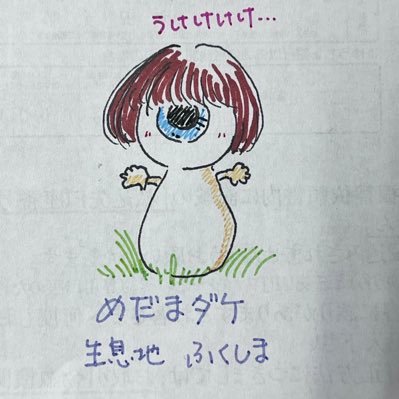 うけけけけ…
めだまダケ
生息地 ふくしま